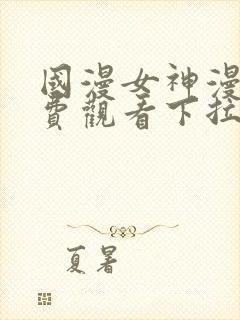 國漫女神漫
費觀看下拉
夏暑